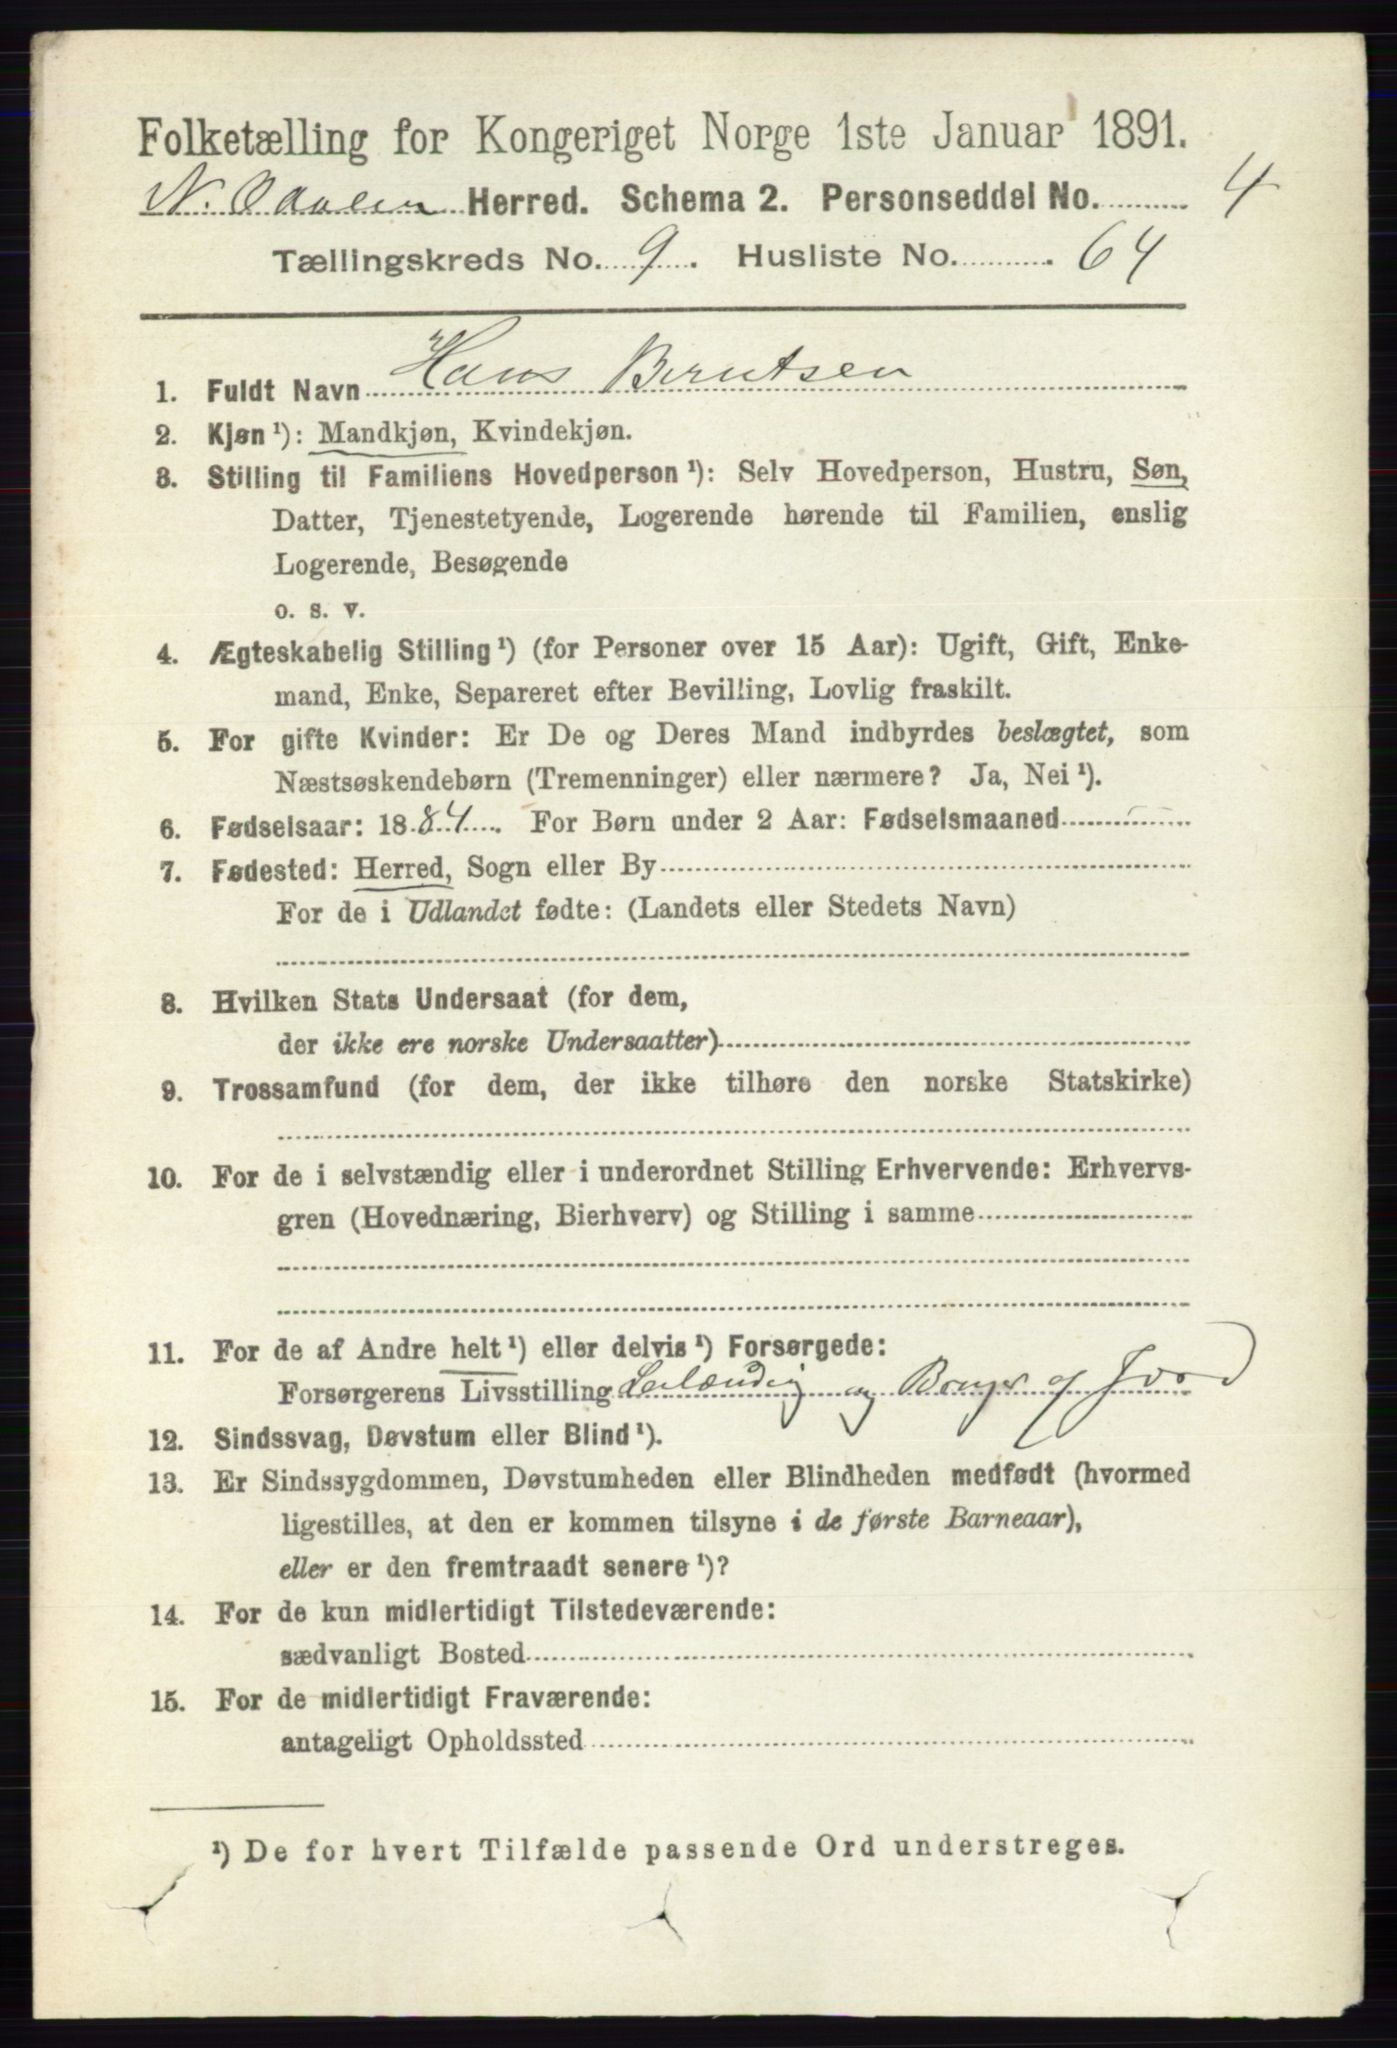 Folketælling for Kongeriget Norge 1ste Januar 1891.
N. Odalen Herred. Schema 2. Personseddel No. 4
Tællingskreds No. 9. Husliste No. 64
1. Fuldt Navn Hans Berntsen
2. Kjøn¹): Mandkjøn, Kvindekjøn.
3. Stilling til Familiens Hovedperson¹): Selv Hovedperson, Hustru, Søn,
Datter, Tjenestetyende, Logerende hørende til Familien, enslig
Logerende, Besøgende
o. s. v.
4. Ægteskabelig Stilling¹) (for Personer over 15 Aar): Ugift, Gift, Enke-
mand, Enke, Separeret efter Bevilling, Lovlig fraskilt.
5. For gifte Kvinder: Er De og Deres Mand indbyrdes beslægtet, som
Næstsøskendebørn (Tremenninger) eller nærmere? Ja, Nei¹).
6. Fødselsaar: 1884. For Børn under 2 Aar: Fødselsmaaned
7. Fødested: Herred, Sogn eller By
For de i Udlandet fødte: (Landets eller Stedets Navn)
8. Hvilken Stats Undersaat (for dem,
der ikke ere norske Undersaatter)
9. Trossamfund (for dem, der ikke tilhøre den norske Statskirke)
10. For de i selvstændig eller i underordnet Stilling Erhvervende: Erhvervs-
gren (Hovednæring, Bierhverv) og Stilling i samme
11. For de af Andre helt¹) eller delvis¹) Forsørgede:
Forsørgerens Livsstilling Leilænding og Bruger af Jord
12. Sindssvag, Døvstum eller Blind¹).
13. Er Sindssygdommen, Døvstumheden eller Blindheden medfødt (hvormed
ligestilles, at den er kommen tilsyne i de første Barneaar),
eller er den fremtraadt senere¹)?
14. For de kun midlertidigt Tilstedeværende:
sædvanligt Bosted
15. For de midlertidigt Fraværende:
antageligt Opholdssted
¹) De for hvert Tilfælde passende Ord understreges.